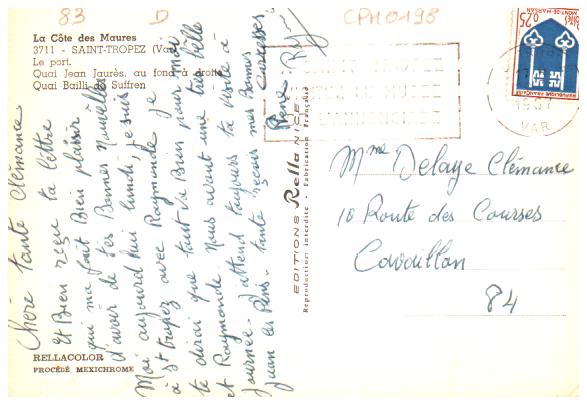 83
D
CPM 0198
La Côte des Maures
3711 - SAINT-TROPEZ (Var)
Le port.
Quai Jean Jaurès, au fond à droite
Quai Bailli de Suffren
Chère tante Clémance
et Bien reçu ta lettre
qui ma fait Bien plaisir
d'avoir de tes Bonnes Nouvelles
Moi aujourd'hui lundi, je suis
à St tropez avec Raymonde je
te dirai que tout va Bien pour moi
et Raymonde. Nous avont une très Belle
journée. J'attend toujours ta visite à
juan les Pins. tante reçois mes Bonnes
Caresses
RELLACOLOR
PROCÉDÉ MEXICHROME
EDITIONS Rella NICE
Reproduction interdite - Fabrication Française
0,25
MONT-DE-MARSAN
REPUBLIQUE FRANÇAISE
VAR
Mme Delaye Clémance
10 Route des Courses
Cavaillon
84